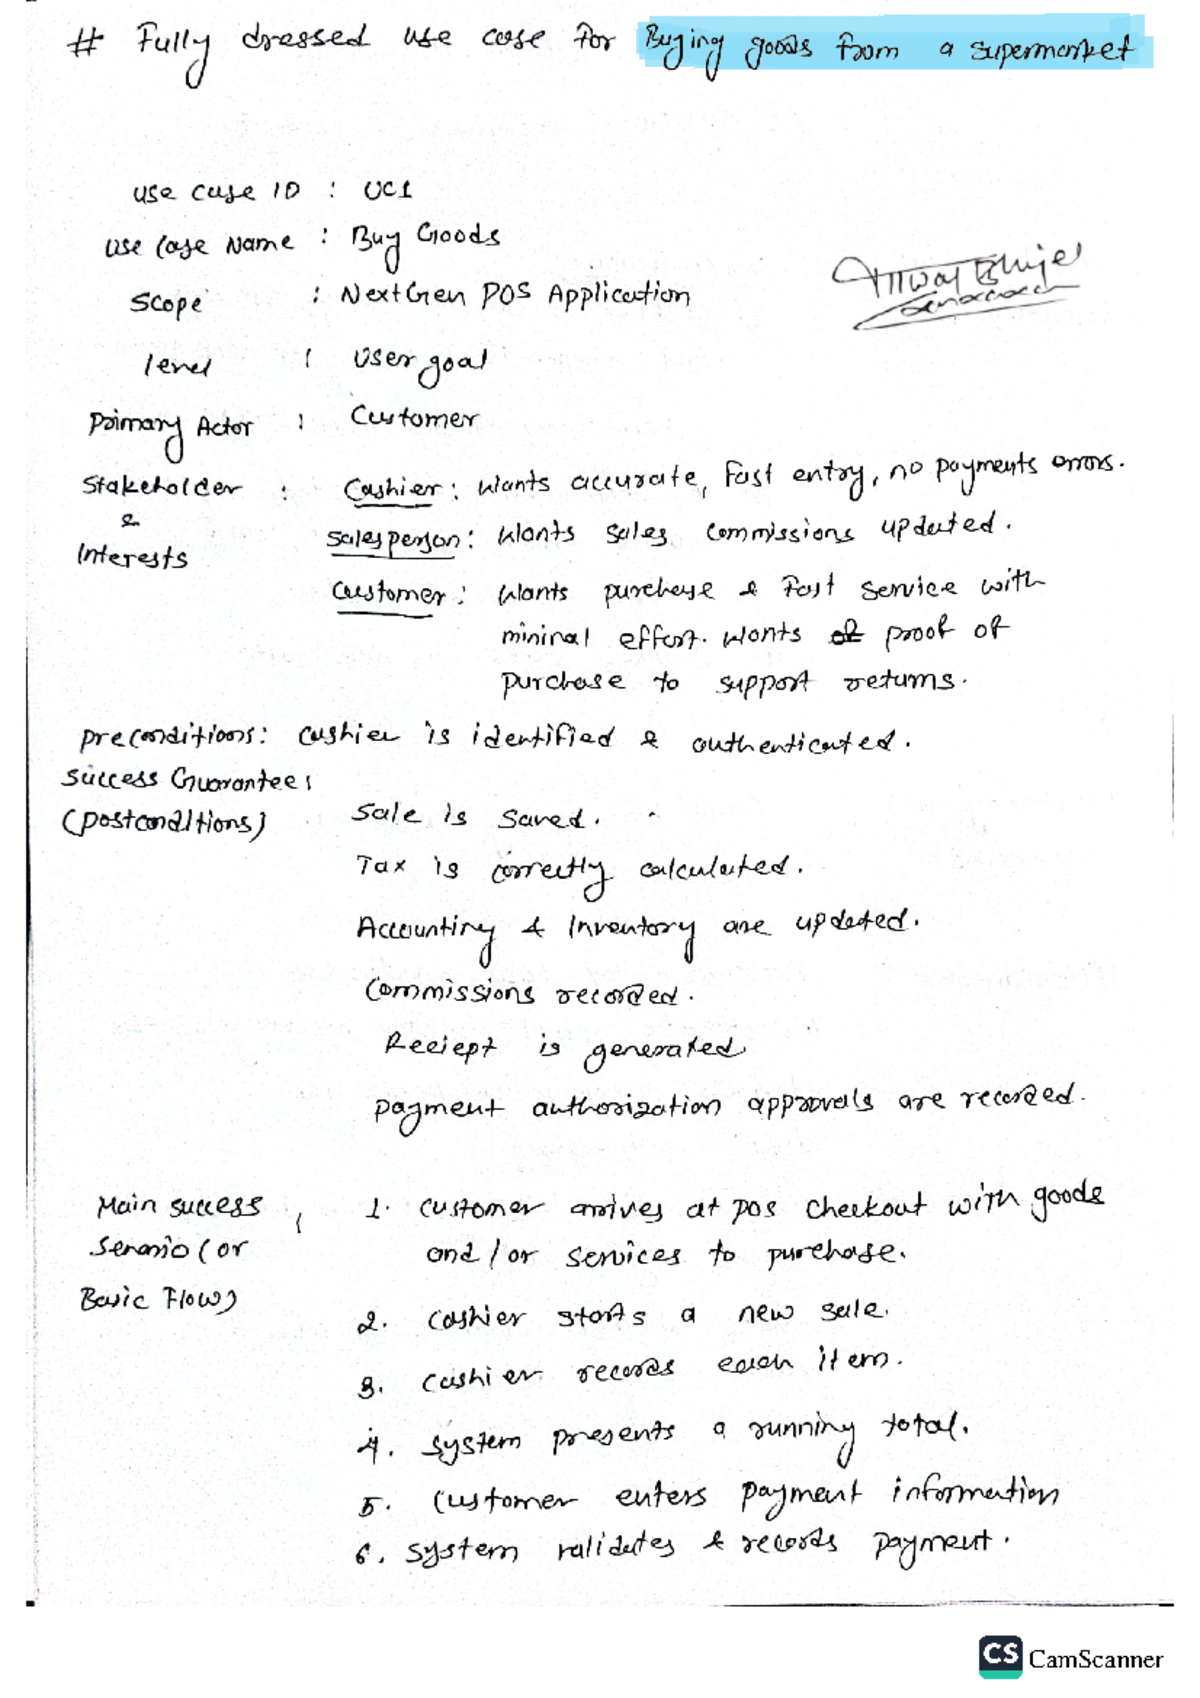 # Fully dressed use case for Buying goods from a supermarket
Use Case ID : UC1
Use Case Name : Buy Goods
Scope : NextGen POS Application
level : User goal
Primary Actor : Customer
Stakeholder : Cashier : Wants accurate, Fast entry, no payments errors.
& Salesperson : Wants sales commissions updated.
Interests
Customer : Wants purchase & Fast service with
mininal effort. Wants proof of
purchase to support returns.
Preconditions: Cashier is identified & authenticated.
Success Guarantee :
(Postconditions) Sale is saved.
Tax is correctly calculated.
Accounting & Inventory are updated.
Commissions recorded.
Reciept is generated
Payment authorization approvals are recorded.
Main success : 1. Customer arrives at POS checkout with goods
Senario (or and / or services to purchase.
Basic Flow)
2. Cashier starts a new sale.
3. Cashier records each item.
4. System presents a running total.
5. Customer enters payment information
6. System validates & records payment.
CS CamScanner